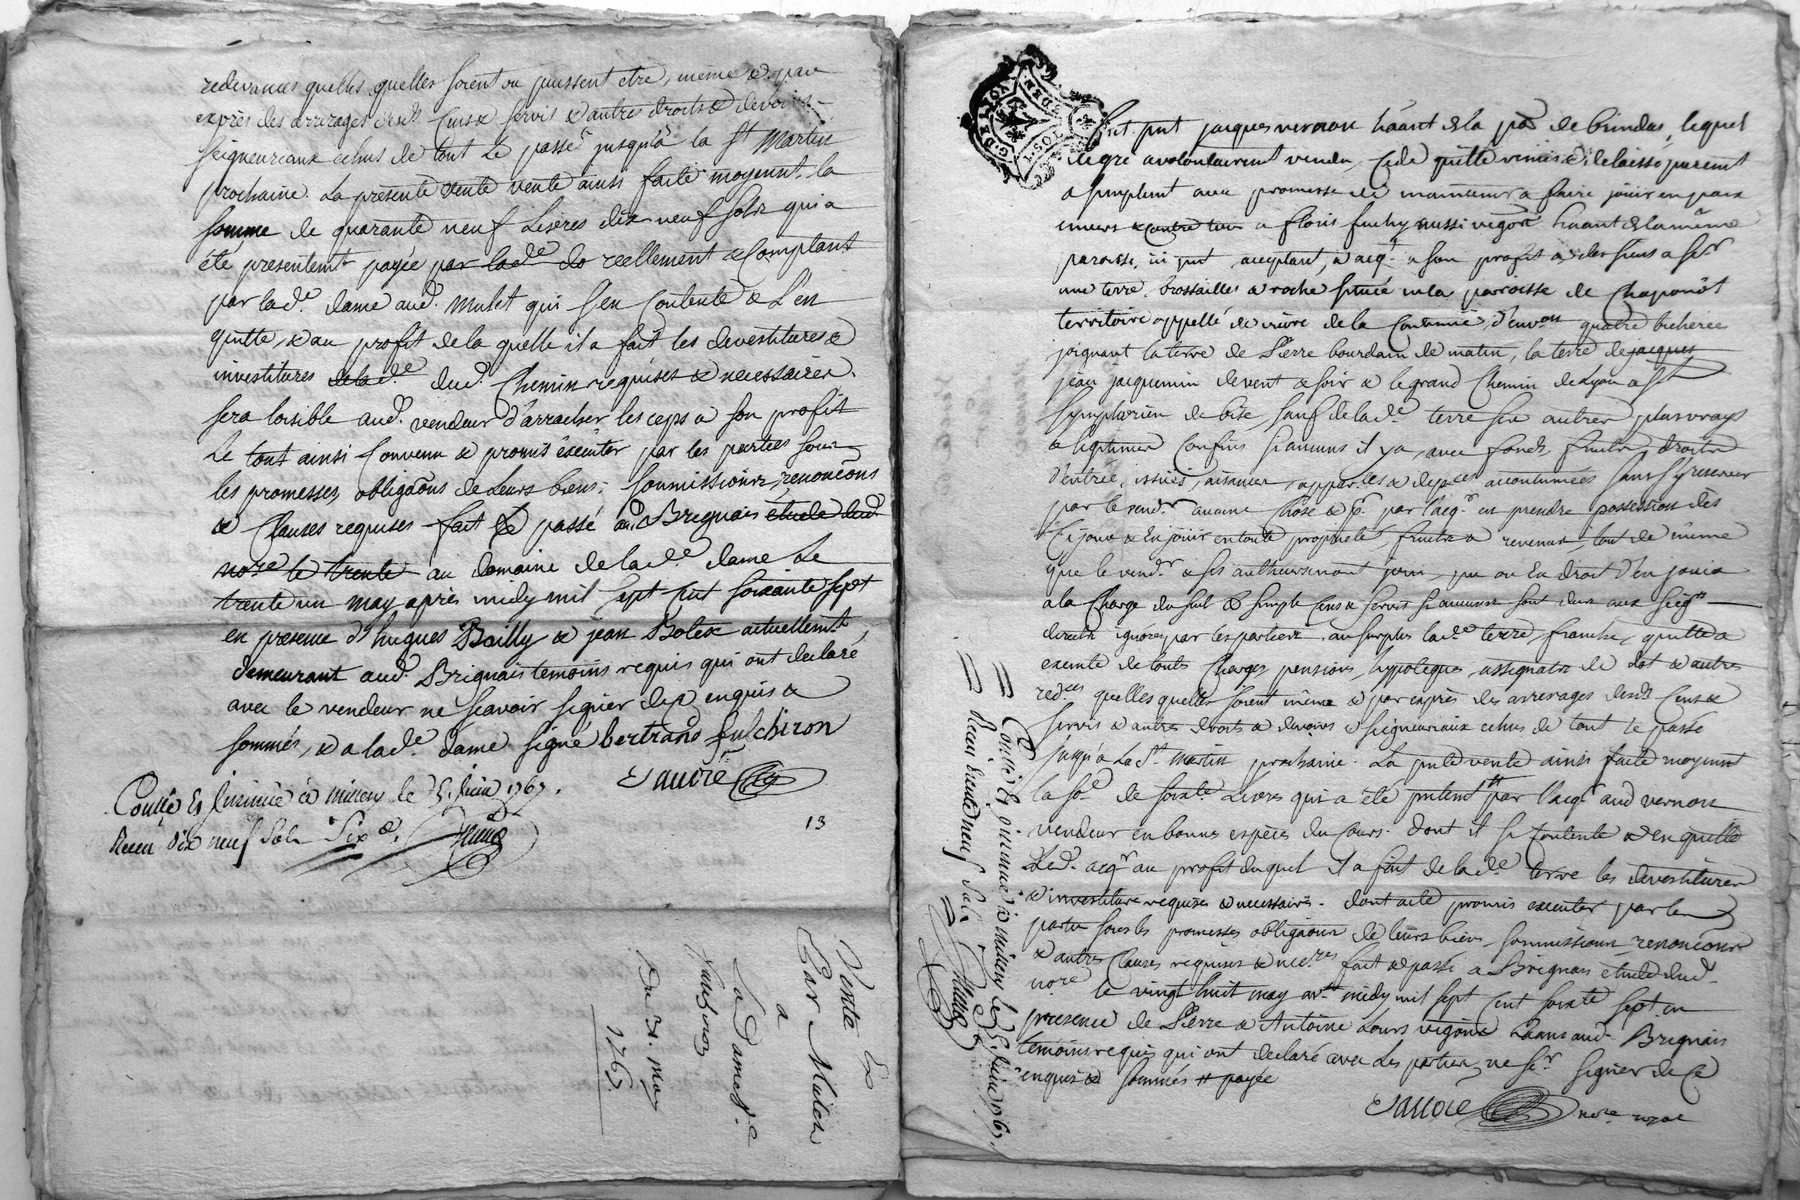 redevances quelles quelles soient ou puissent etre, meme & par
exprès des arrerages desd. Cens & servis & autres droits & devoirs
seigneuriaux echus de tout le passé jusqu'à la St Martin
prochaine. La presente vente vente ainsi faite moyennt. la
somme de quarante neuf Livres dix neuf sols qui a
été presentemt payée par lade. do reellement & Comptant
par lade. dame aud. Mulet qui s'en Contente & L'en
quitte, & au profit de la quelle il a fait les devestitures &
investitures delade. dud. Chemin requises & necessaires.
sera loisible aud. vendeur d'arracher les ceps a son profit
Le tout ainsi Convenu & promis éxécuter par les parties sous
les promesses, obligãons de Leurs biens, soumissions, renonciãons
& Clauses requises fait & passé aud. Brignais étude dud.
nore le trente au domaine de lade. dame Le
trente un may après midy mil sept Cent soixante sept
en presence d'hugues Bailly & jean Boles actuellemt
demeurant aud. Brignais temoins requis qui ont declaré
avec le vendeur ne scavoir signer de ce enquis &
sommés, & a lade. dame signé bertrand fulchiron
Sauore
Conllé Es insinué à millery le 5. juin 1767.
Receu dix neuf sols Six d.
13
Vente de
Par Mulet
a
La Dame
Fulchiron
Du 31. May
1767.
G. DE LYON
fut pnt jacques vernon hãant de la pse de brindas, lequel
de gré a volontairemt vendu, cede quitte remis & delaisse purement
& simplemt avec promesse de maintenir & faire jouir en paix
envers & contre tous a floris fuchy aussi vigon hãant de la même
paroisse, ici pnt acceptant, & acqt. a son profit & des siens a sr
une terre, brossailles & roche située en la paroisse de Chaponôt
territoire appellé de de la d'environ quatre bicherée
joignant la terre de Pierre bourdain de matin, la terre de jacques
jean jacquemin de vent & soir & le grand Chemin de Lyon a St
Symphorien de bise, sauf de lade. terre ses autres plus vrays
& legitimes Confins si aucuns il y a, avec fonds, fruits, droits
d'entrée, issues, aisances, appartces & depces accoutumées sans s'y reserver
par le vendr aucune Chose & pr par l'acqr en prendre possession dès
Ce jour & En jouir en toute propriété, fruits & revenus, tout de même
que le vendr & ses autheurs en ont joui, pu ou Eu droit d'en jouir
a la Charge du seul & simple Cens & servis si aucuns sont dus aux seigrs
directs ignorés par les parties. au surplus lade. terre, franche, quitte &
exemte de toutes Charges, pensions, hypoteques, assignats de dot & autres
redces quelles quelles soient même & par exprès des arrerages desd. Cens &
servis & autres droits & devoirs & seigneuriaux echus de tout le passé
jusqu'à la St. Martin prochaine. La pnte vente ainsi faite moyennt
la sôe de soixte. Livres qui a été pntemt # par l'acqr aud vernon
vendeur en bonnes espèces du Cours. dont il se Contente & en quitte
Led. acqr au profit duquel il a fait de lade. terre les devestitures
& investitures requises & necessaires. dont acte promis executer par les
parties sous les promesses obligãons de leurs biens soumissions renonciãons
& autres Clauses requises & necres fait & passé a Brignais étude dud.
nore le vingt huit may avt midy mil sept Cent soixte sept en
presence de Pierre & Antoine vigons hãans aud. Brignais
témoins requis qui ont declaré avec les parties, ne sr signer de Ce
enquis & sommés # payée
Sauore nore royal
Conllé Es insinué à millery le 5. juin 1767.
Receu trente neuf sols